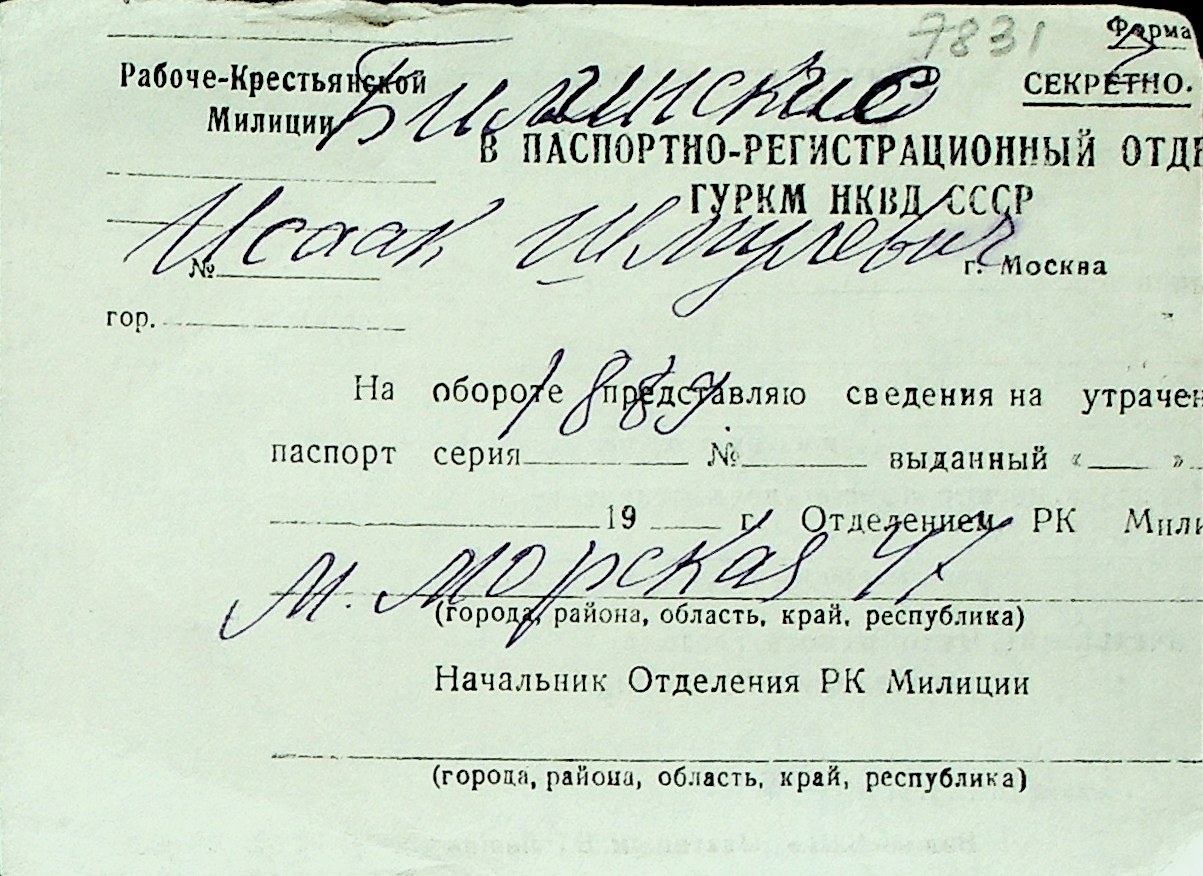 7831
Форма
Рабоче-Крестьянской
СЕКРЕТНО.
Билинский
Милиции
В ПАСПОРТНО-РЕГИСТРАЦИОННЫЙ ОТДЕ
ГУРКМ НКВД СССР
Исаак Шмулевич
№
г. Москва
гор.
На обороте представляю сведения на утрачен
1889
паспорт серия № выданный « »
19 г. Отделением РК Мили
М. Морская 4/7
(города, района, область, край, республика)
Начальник Отделения РК Милиции
(города, района, область, край, республика)